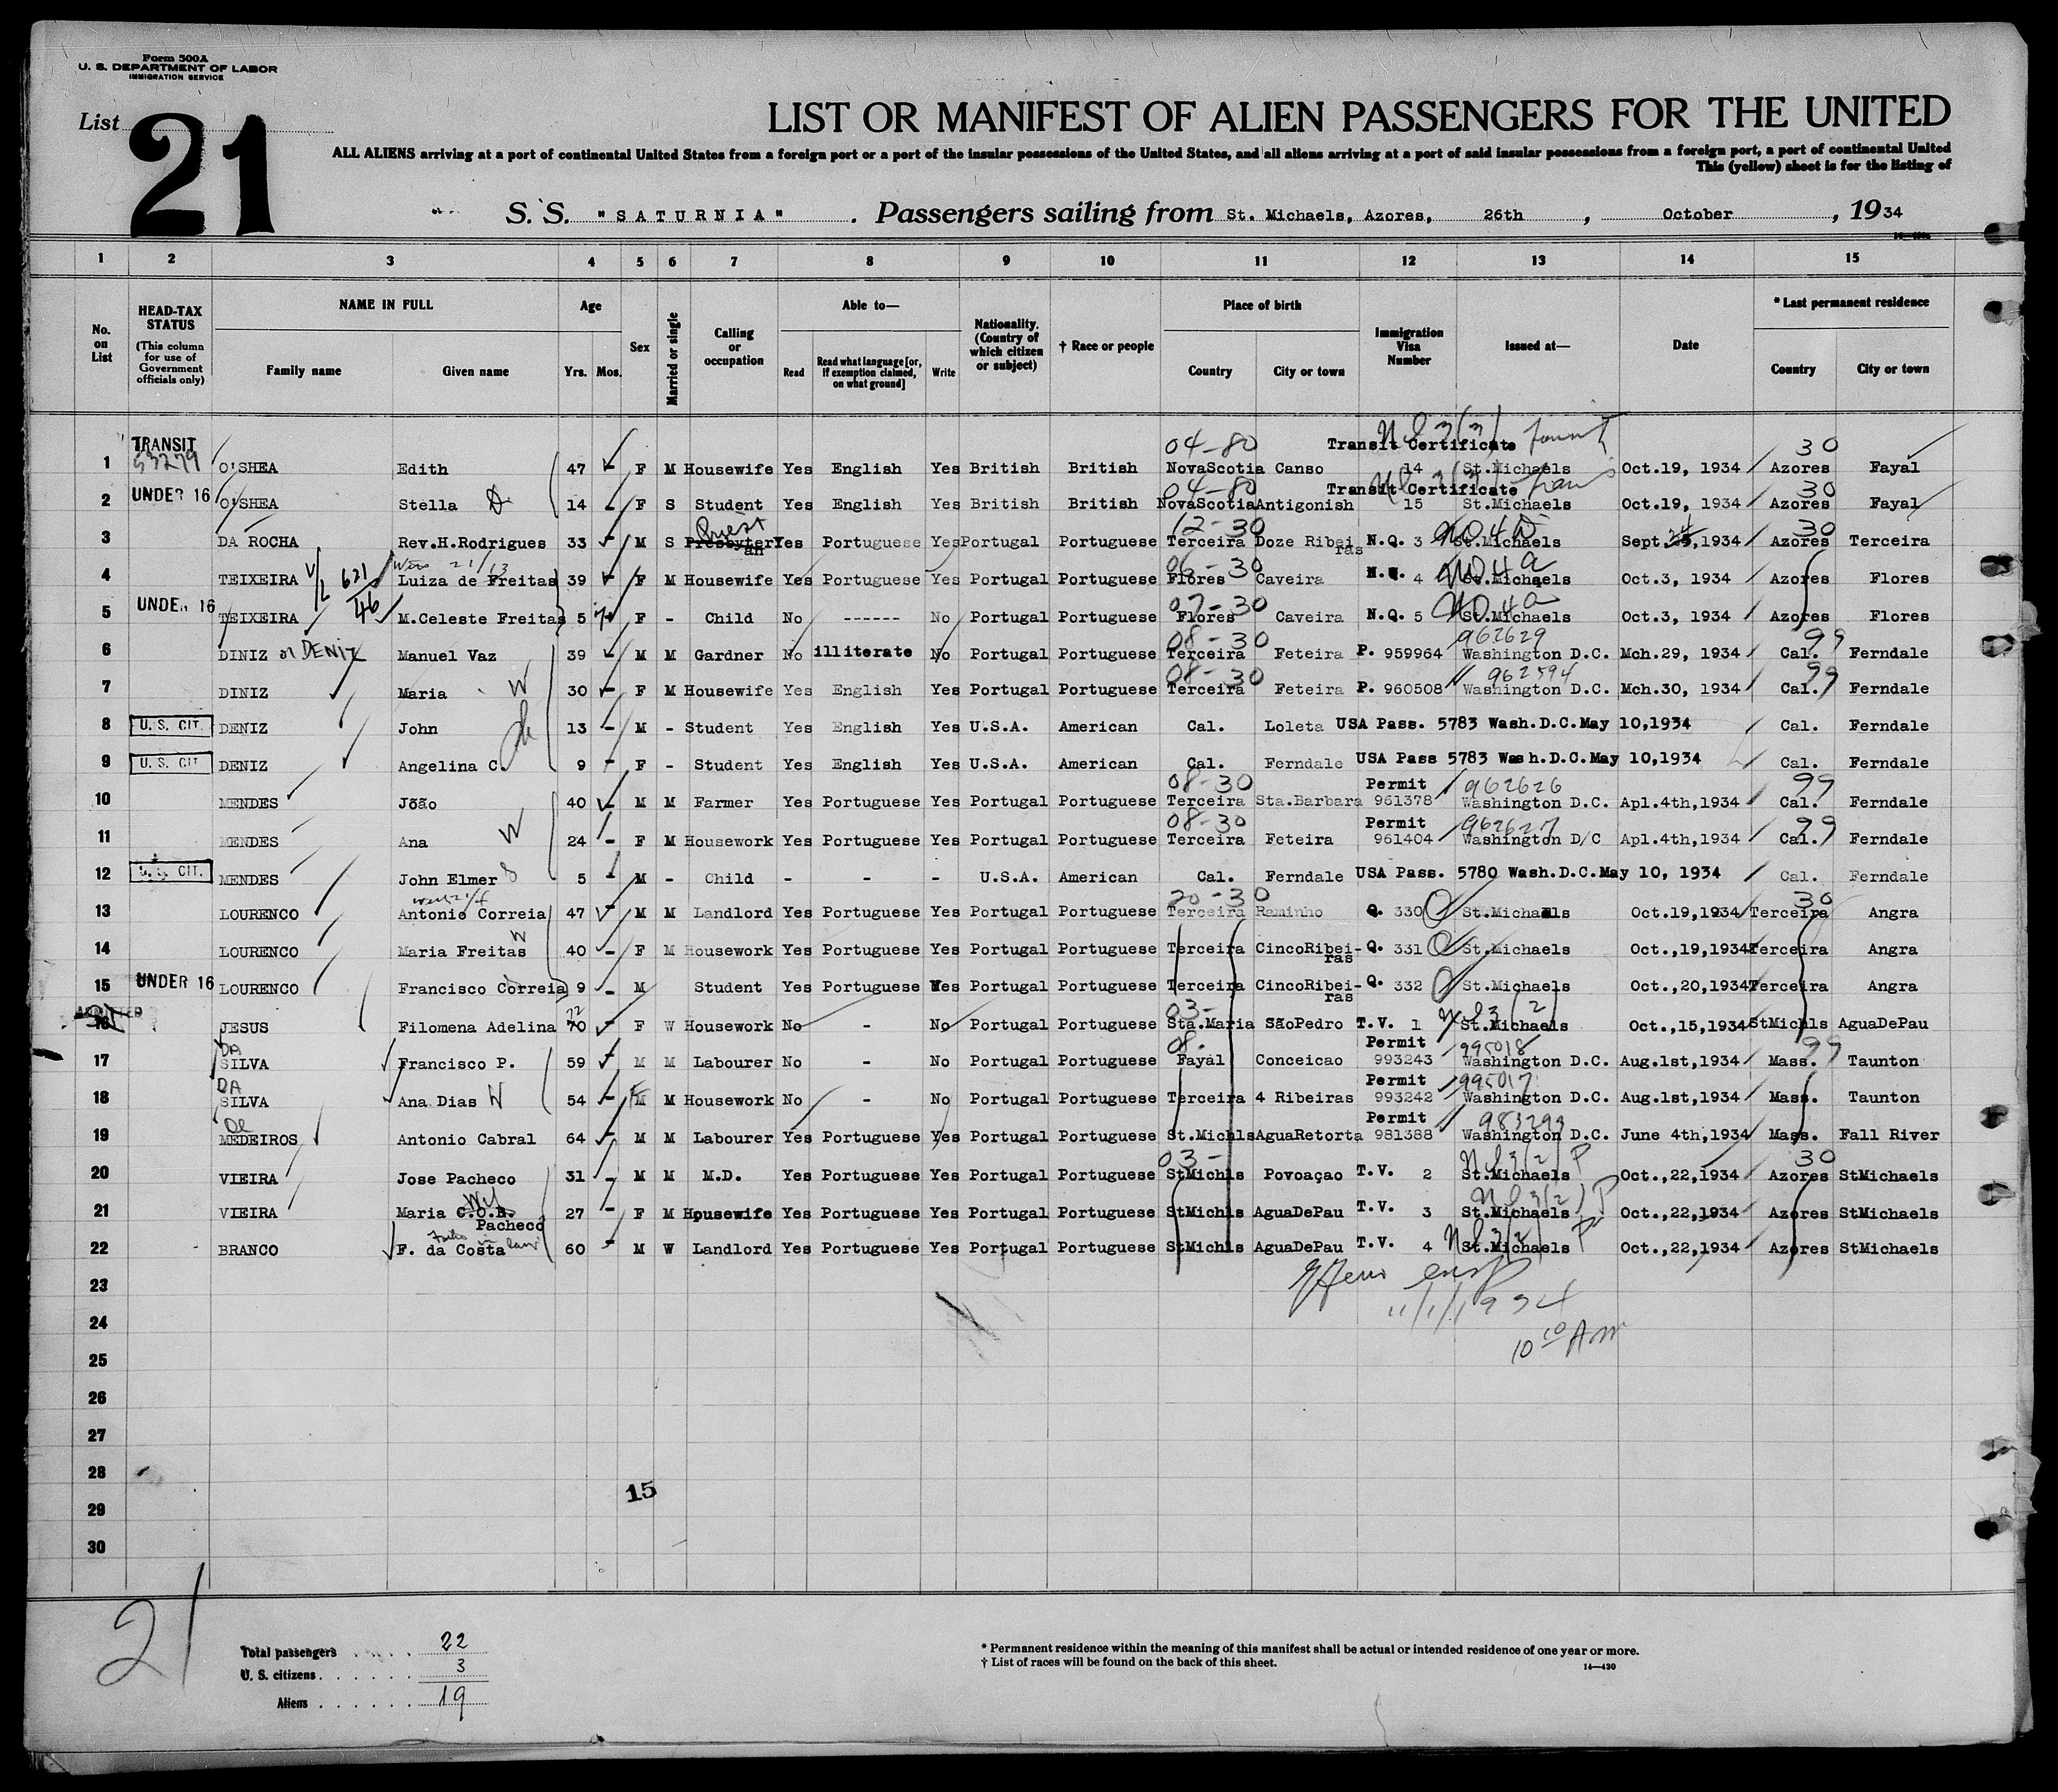 Form 500A
U. S. DEPARTMENT OF LABOR
IMMIGRATION SERVICE
List 21
LIST OR MANIFEST OF ALIEN PASSENGERS FOR THE UNITED
ALL ALIENS arriving at a port of continental United States from a foreign port or a port of the insular possessions of the United States, and all aliens arriving at a port of said insular possessions from a foreign port, a port of continental United
This (yellow) sheet is for the listing of
S. S. "SATURNIA" . Passengers sailing from St. Michaels, Azores, 26th , October , 1934
1 2 3 4 5 6 7 8 9 10 11 12 13 14 15
No. on List
HEAD-TAX STATUS
(This column for use of Government officials only)
NAME IN FULL
Family name Given name
Age
Yrs. Mos.
Sex
Married or single
Calling or occupation
Able to—
Read Read what language [or, if exemption claimed, on what ground] Write
Nationality. (Country of which citizen or subject)
† Race or people
Place of birth
Country City or town
Immigration Visa Number
Issued at—
Date
* Last permanent residence
Country City or town
TRANSIT 04-80 Transit Certificate 30
1 53279 O'SHEA Edith 47 - F M Housewife Yes English Yes British British NovaScotia Canso 14 St.Michaels Oct.19, 1934 Azores Fayal
UNDER 16 04-80 Transit Certificate 30
2 O'SHEA Stella D 14 - F S Student Yes English Yes British British NovaScotia Antigonish 15 St.Michaels Oct.19, 1934 Azores Fayal
Priest 12-30 30
3 DA ROCHA Rev.H.Rodrigues 33 - M S Presbyterian Yes Portuguese Yes Portugal Portuguese Terceira Doze Ribeiras N.Q. 3 St.Michaels Sept.24,1934 Azores Terceira
621/46 06-30
4 TEIXEIRA Luiza de Freitas 39 - F M Housewife Yes Portuguese Yes Portugal Portuguese Flores Caveira N.Q. 4 St.Michaels Oct.3, 1934 Azores Flores
UNDER 16 07-30
5 TEIXEIRA M.Celeste Freitas 5 F - Child No ------ No Portugal Portuguese Flores Caveira N.Q. 5 St.Michaels Oct.3, 1934 Azores Flores
08-30 962629 99
6 DINIZ or DENIZ Manuel Vaz 39 - M M Gardner No illiterate No Portugal Portuguese Terceira Feteira P. 959964 Washington D.C. Mch.29, 1934 Cal. Ferndale
08-30 962594 99
7 DINIZ Maria W 30 - F M Housewife Yes English Yes Portugal Portuguese Terceira Feteira P. 960508 Washington D.C. Mch.30, 1934 Cal. Ferndale
8 U. S. CIT. DENIZ John 13 - M - Student Yes English Yes U.S.A. American Cal. Loleta USA Pass. 5783 Wash.D.C.May 10,1934 Cal. Ferndale
9 U. S. CIT DENIZ Angelina C. 9 - F - Student Yes English Yes U.S.A. American Cal. Ferndale USA Pass 5783 Wash.D.C.May 10,1934 Cal. Ferndale
08-30 Permit 962626 99
10 MENDES João 40 - M M Farmer Yes Portuguese Yes Portugal Portuguese Terceira Sta.Barbara 961378 Washington D.C. Apl.4th,1934 Cal. Ferndale
08-30 Permit 962627 99
11 MENDES Ana W 24 - F M Housework Yes Portuguese Yes Portugal Portuguese Terceira Feteira 961404 Washington D/C Apl.4th,1934 Cal. Ferndale
12 U. S. CIT. MENDES John Elmer 5 - M - Child - - - U.S.A. American Cal. Ferndale USA Pass. 5780 Wash.D.C.May 10, 1934 Cal. Ferndale
20-30 30
13 LOURENCO Antonio Correia 47 - M M Landlord Yes Portuguese Yes Portugal Portuguese Terceira Raminho Q. 330 St.Michaels Oct.19,1934 Terceira Angra
14 LOURENCO Maria Freitas W 40 - F M Housework Yes Portuguese Yes Portugal Portuguese Terceira CincoRibei-ras Q. 331 St.Michaels Oct.,19,1934 Terceira Angra
15 UNDER 16 LOURENCO Francisco Correia 9 - M Student Yes Portuguese Yes Portugal Portuguese Terceira CincoRibei-ras Q. 332 St.Michaels Oct.,20,1934 Terceira Angra
ADMITTED 72 03-
16 JESUS Filomena Adelina 70 F W Housework No - No Portugal Portuguese Sta.Maria SãoPedro T.V. 1 St.Michaels Oct.,15,1934 StMichls AguaDePau
DA 08- Permit 995018 99
17 SILVA Francisco P. 59 - M M Labourer No - No Portugal Portuguese Fayal Conceicao 993243 Washington D.C. Aug.1st,1934 Mass. Taunton
DA Permit 995017
18 SILVA Ana Dias W 54 - M M Housework No - No Portugal Portuguese Terceira 4 Ribeiras 993242 Washington D.C. Aug.1st,1934 Mass. Taunton
De Permit 983293
19 MEDEIROS Antonio Cabral 64 - M M Labourer Yes Portuguese Yes Portugal Portuguese St.Michls AguaRetorta 981388 Washington D.C. June 4th,1934 Mass. Fall River
03- 30
20 VIEIRA Jose Pacheco 31 - M M M.D. Yes Portuguese Yes Portugal Portuguese StMichls Povoaçao T.V. 2 St.Michaels Oct.,22,1934 Azores StMichaels
21 VIEIRA Maria C.O.B. Pacheco 27 - F M Housewife Yes Portuguese Yes Portugal Portuguese StMichls AguaDePau T.V. 3 St.Michaels Oct.,22,1934 Azores StMichaels
22 BRANCO F. da Costa 60 - M W Landlord Yes Portuguese Yes Portugal Portuguese StMichls AguaDePau T.V. 4 St.Michaels Oct.,22,1934 Azores StMichaels
23
11/1/1934
24
10 10 AM
25
26
27
28
15
29
30
21
Total passengers 22
U. S. citizens 3
Aliens 19
* Permanent residence within the meaning of this manifest shall be actual or intended residence of one year or more.
† List of races will be found on the back of this sheet.
14—430